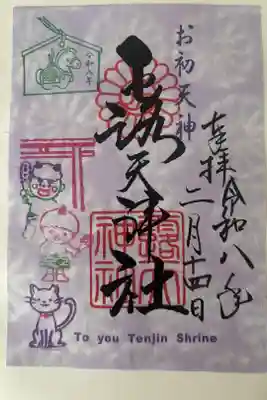 奉拝 令和八年
二月十四日
お初天神
露天神社
令和八年
To you Tenjin Shrine